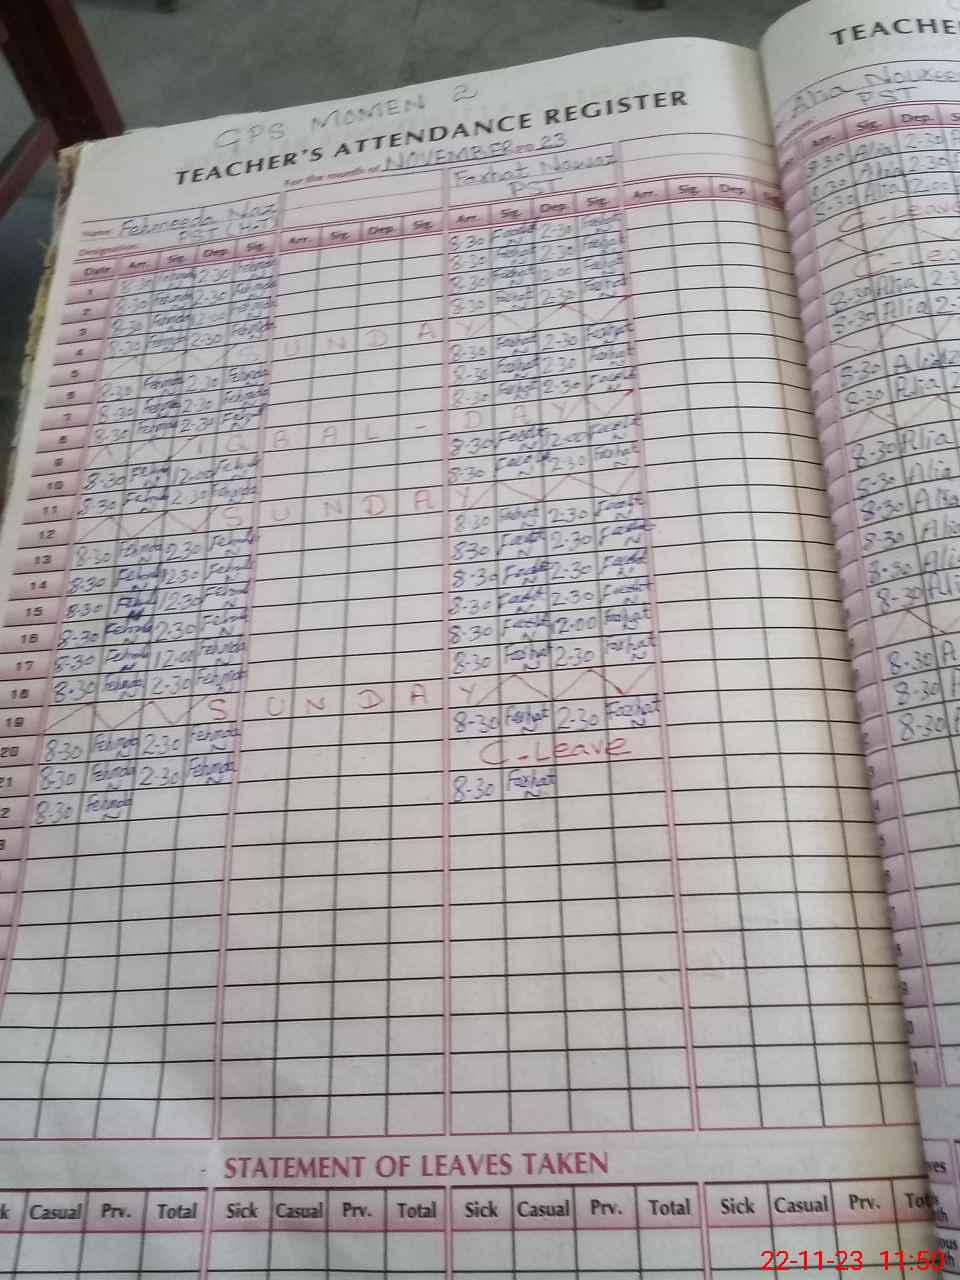 GPS MOMEN 2
TEACHER'S ATTENDANCE REGISTER
For the month of NOVEMBER 20 23
Name: Fehmeeda Naz Faxhat Nawaz
Designation: PST (H.T) PST
Date Arr. Sig. Dep. Sig. Arr. Sig. Dep. Sig. Arr. Sig. Dep. Sig. Arr. Sig. Dep. Sig.
1 8-30 Fehmda 2-30 Fehmda 8-30 Faxhat N 2-30 Faxhat N
2 8-30 Fehmda 2-30 Fehmda 8-30 Faxhat N 2-30 Faxhat N
3 8-30 Fehmda 12-00 Fehmda 8-30 Faxhat N 12-00 Faxhat N
4 8-30 Fehmda 2-30 Fehmda 8-30 Faxhat N 2-30 Faxhat N
5 SUNDAY
6 8-30 Fehmda 2-30 Fehmda 8-30 Faxhat N 2-30 Faxhat N
7 8-30 Fehmda 2-30 Fehmda 8-30 Faxhat N 2-30 Faxhat N
8 8-30 Fehmda 2-30 Fehmda 8-30 Faxhat N 2-30 Faxhat N
9 IQBAL - DAY
10 8-30 Fehmda N 12-00 Fehmda N 8-30 Faxhat N 12-00 Faxhat N
11 8-30 Fehmda N 2-30 Fehmda 8-30 Faxhat N 2-30 Faxhat N
12 SUNDAY
13 8-30 Fehmda N 2-30 Fehmda N 8-30 Faxhat N 2-30 Faxhat N
14 8-30 Fehmda N 2-30 Fehmda N 8-30 Faxhat N 2-30 Faxhat N
15 8-30 Fehmda N 2-30 Fehmda N 8-30 Faxhat N 2-30 Faxhat N
16 8-30 Fehmda N 2-30 Fehmda N 8-30 Faxhat N 2-30 Faxhat N
17 8-30 Fehmda N 12-00 Fehmda N 8-30 Faxhat N 12-00 Faxhat N
18 8-30 Fehmda N 2-30 Fehmda N 8-30 Faxhat N 2-30 Faxhat N
19 SUNDAY
20 8-30 Fehmda N 2-30 Fehmda N 8-30 Faxhat N 2-30 Faxhat N
21 8-30 Fehmda N 2-30 Fehmda N C-Leave
2 8-30 Fehmda N 8-30 Faxhat N
STATEMENT OF LEAVES TAKEN
Casual Prv. Total Sick Casual Prv. Total Sick Casual Prv. Total Sick Casual Prv.
TEACHE
Alia
PST
Arr. Sig. Dep.
8-30 Alia 2-30
8-30 Alia 2-30
8-30 Alia 12-00
C-Leave
C-Lea
8-30 Alia 2-3
8-30 Alia 2-
8-30 Alia 2
8-30 Alia 2
8-30 Alia
8-30 Alia
8-30 Alia
8-30 Alia
8-30 Alia
8-30 Ali
8-30 A
8-30
8-30
22-11-23 11:50